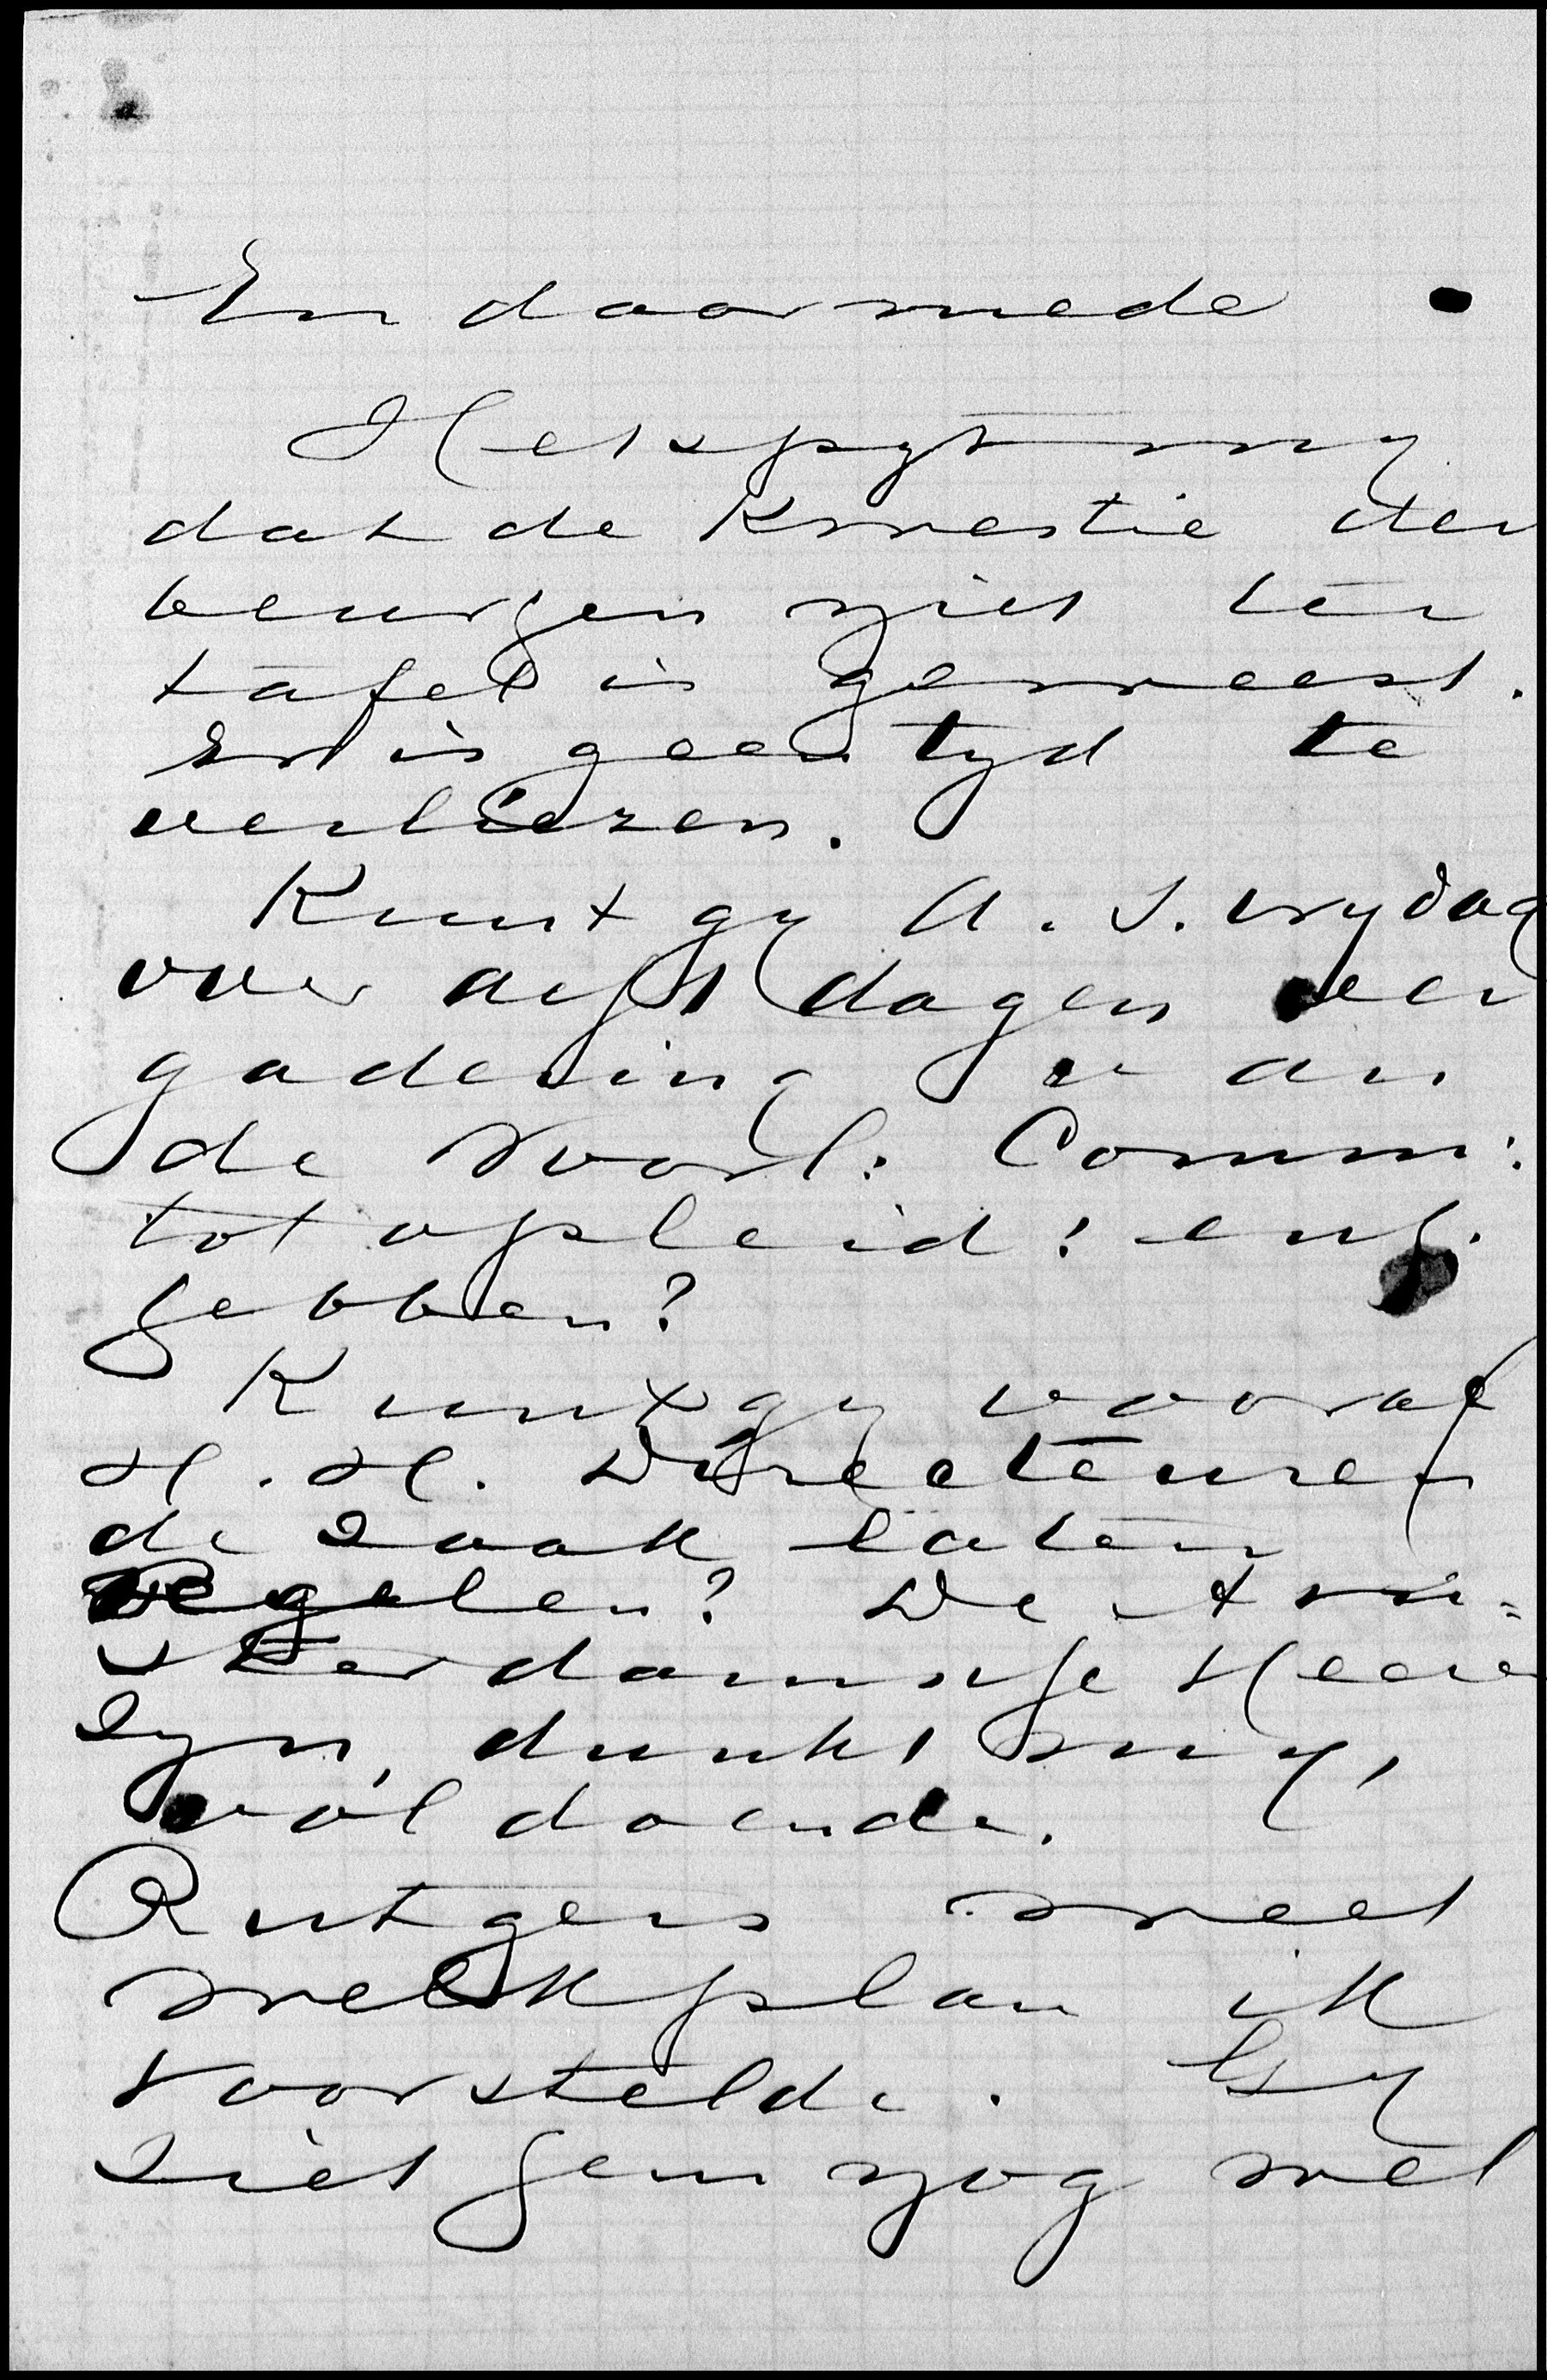 En daarmede
Het spyt my
dat de kwestie der
beurzen niet ter
tafel is geweest.
Er is geen tyd te
verliezen.
Kunt gy a. s. vrydag
over acht dagen ver
gadering van
de Voorl: Comm:
tot opleid: enz.
hebben?
Kunt gy vooraf
H. H. Directeuren
de zaak laten
regelen? De Am=
sterdamsche Heeren
zyn, dunkt my,
voldoende.
Rutgers weet
welk plan ik
voorstelde. Gy
ziet hem nog wel